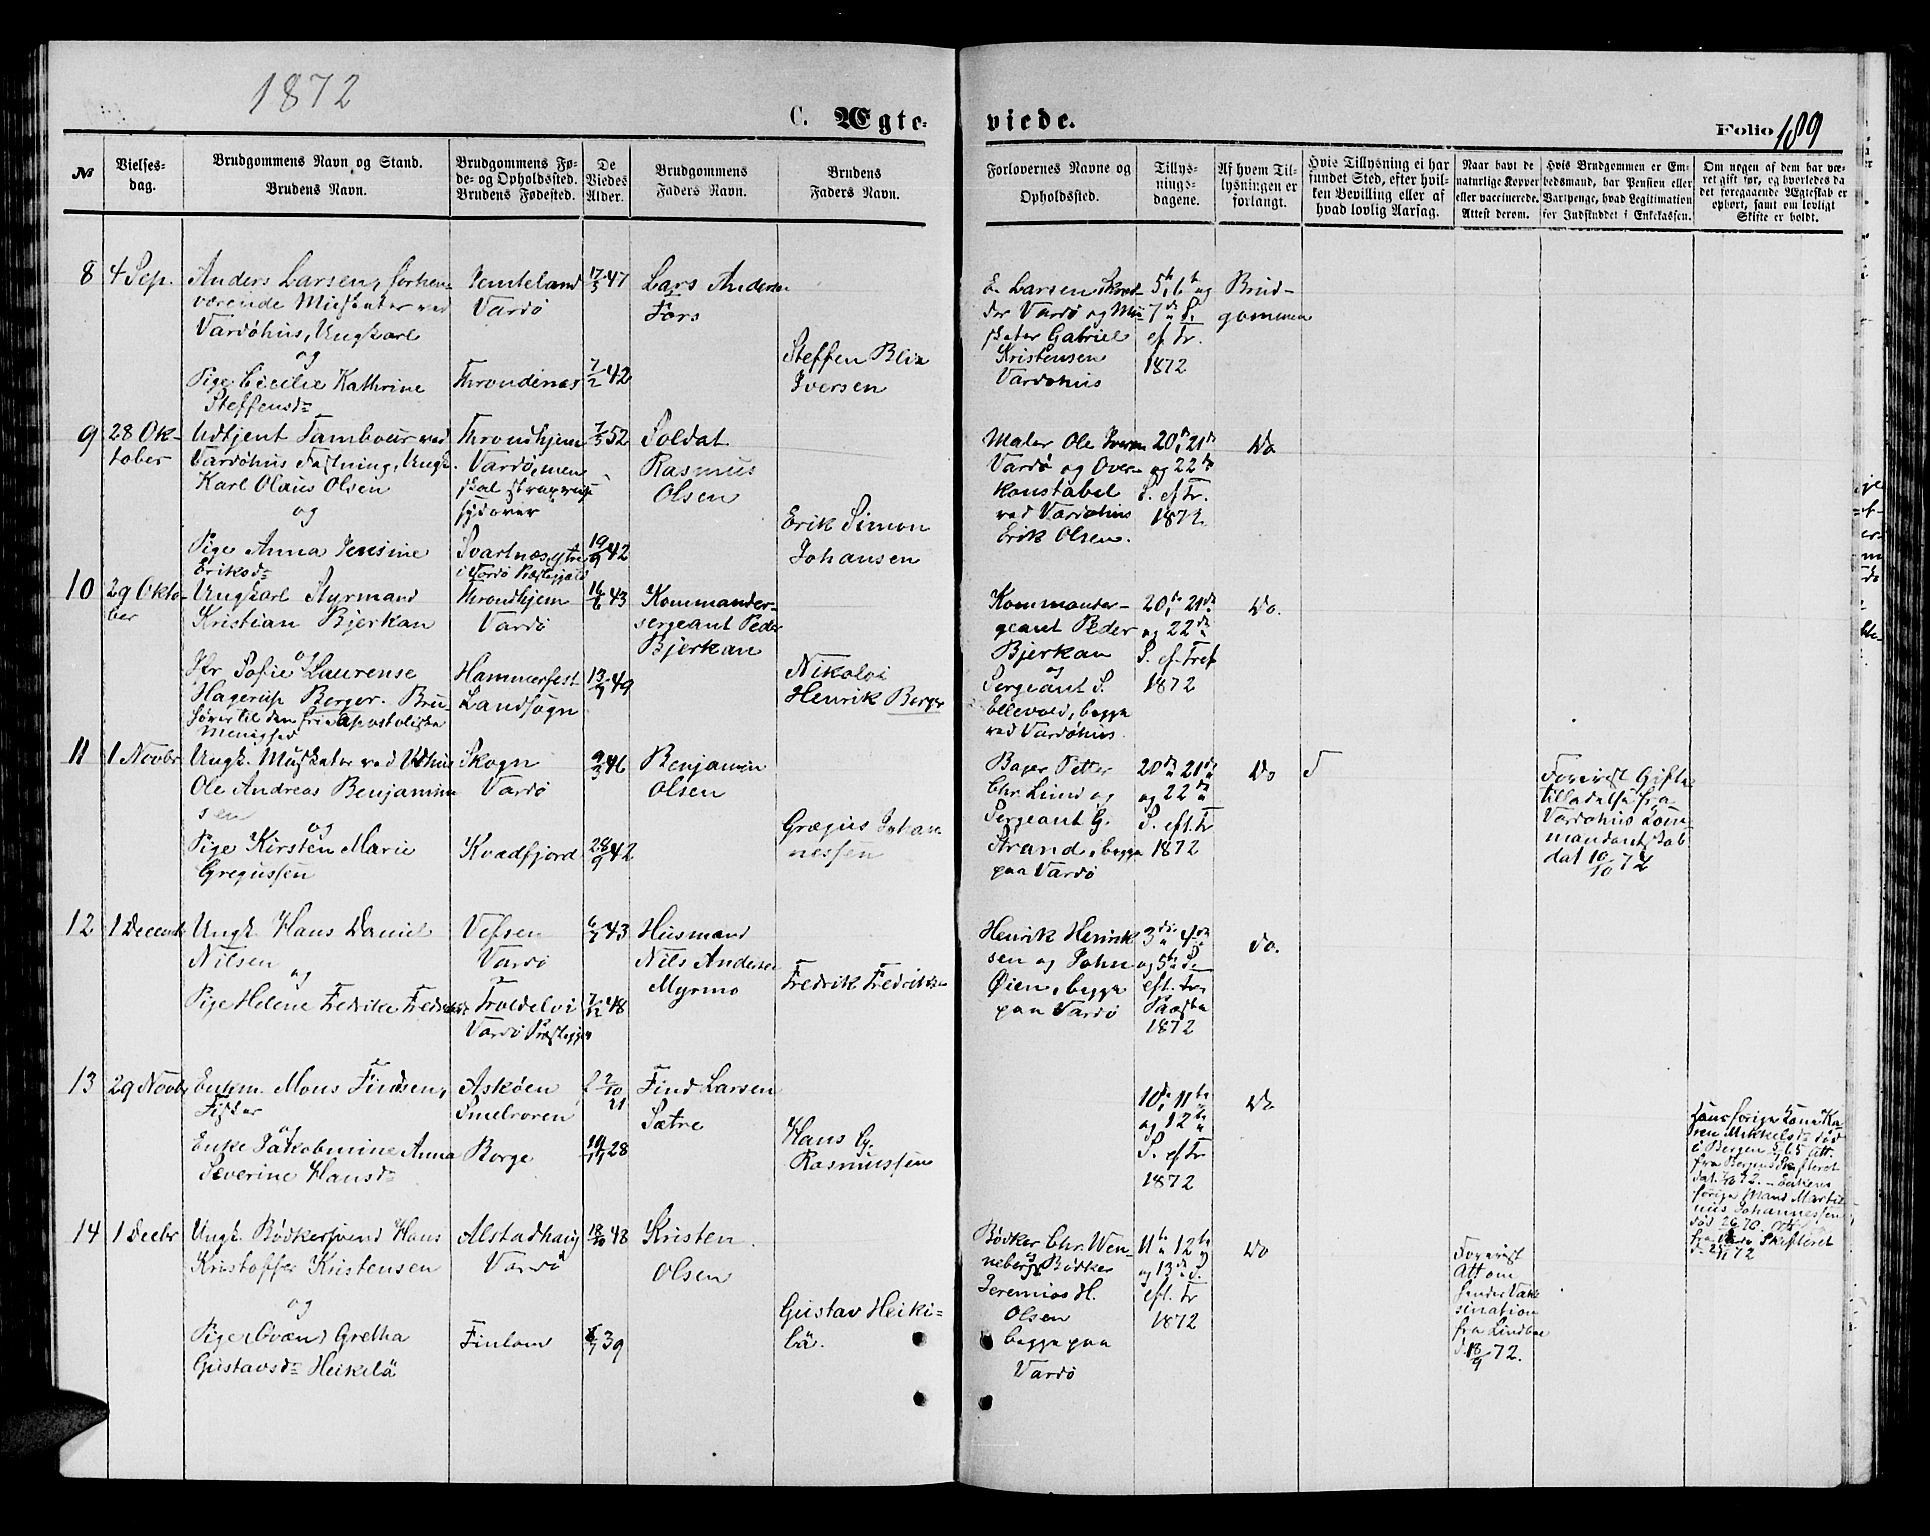 1872
C. Ægte-
viede.
Folio 189
№
Vielses-
dag.
Brudgommens Navn og Stand.
Brudens Navn.
Brudgommens Fø-
de- og Opholdssted.
Brudens Fødested.
De
Viedes
Alder.
Brudgommens
Faders Navn.
Brudens
Faders Navn.
Forlovernes Navne og
Opholdssted.
Tillys-
nings-
dagene.
Af hvem Til-
lysningen er
forlangt.
Hvis Tillysning ei har
fundet Sted, efter hvil-
ken Bevilling eller af
hvad lovlig Aarsag.
Naar havt de
naturlige Kopper
eller vaccinerede.
Attest derom.
Hvis Brudgommen er Em-
bedsmand, har Pension eller
Vartpenge, hvad Legitimation
for Indskuddet i Enkekassen.
Om nogen af dem har væ-
ret gift før, og hvorledes da
det foregaaende Ægteskab er
ophørt, samt om lovligt
Skifte er holdt.
8
4 Sep.
Anders Larsen, forhen-
værende Musketer ved
Vardøhus, Ungkarl
og
Pige Cecilie Kathrine
Steffensd.
Jemteland
Vardø
Throndenes
17/3 47
7/2 42
Lars Andersen
Fors
Steffen Blix
Iversen
E. Larsen
der Vardø og Mu-
sketer Gabriel
Kristensen
Vardøhus
5te, 6te og
7de S.
ef Tr.
1872
Brud-
gommen
9
28 Ok-
tober
Udtjent Tambour ved
Vardøhus Fæstning, Ungk.
Karl Olaus Olsen
og
Pige Anna Jensine
Eriksd.
Throndhjem
Vardø, men
skal
sydover
Svartnæs ytre
i Vardø Præstegjeld
7/3 52
19/9 42
Soldat
Rasmus
Olsen
Erik Simon
Johansen
Maler Ole Iversen
Vardø og Over-
konstabel
ved Vardøhus
Erik Olsen.
20de, 21de
og 22de
S. ef Tr.
1872
Do
10
29 Okto-
ber
Ungkarl Styrmand
Kristian Bjerkan
og
Fr Sofie Laurense
Hagerup Berger. Bru-
hører til den fri apostoliske
Menighed
Throndhjem
Vardø
Hammerfest
Landsogn
16/6 43
13/7 49
Kommander-
sergeant Peder
Bjerkan
Nikolai
Henrik Berger
Kommander-
geant Peder
Bjerkan
og
Sergeant S.
Ellevold, begge
ved Vardøhus.
20de, 21de
og 22de
S. ef. Tref
1872
Do.
11
1 Novbr
Ungk. Musketer ved Vdhus
Ole Andreas Benjamin
sen
og
Pige Kirsten Marie
Gregussen
Skogn
Vardø
Kvædfjord
9/3 46
28/9 42
Benjamin
Olsen
Græqus Johan
nessen
Bager Petter
Chr. Lund og
Sergeant G.
Strand, begge
paa Vardø
20de 21de
og 22de
S. eft. Tr
1872
Do
Forevist Gifte
tilladelse fra
Vardøhus Kom-
mandantskab
dat 10/10 72
12
1 Decemb
Ungk. Hans Daniel
Nilsen
og
Pige Helene Fredrike Fredriks
Vefsen
Vardø
Troldelvi
Vardø Præstegjæ
6/7 43
7/12 48
Husmand
Nils Andersen
Myrmo
Fredrik Fredriksen
Henrik Henrik
sen og John
Øien, begge
paa Vardø
3die 4de
og 5te S.
eft. Tr
1872
do.
13
29 Novbr
Enkem. Mons Findsen,
Fisker
og
Enke Jakobmine Anna
Severine Hansd.
Askøen
Smelroren
Borge
2/10
21
19/11 28
Find Larsen
Sætre
Hans
Rasmussen
10de, 11te
og 12te
S. ef Tr
1872
Do
Hans forrige Kone Ka-
ren Mikkelsd. død
i Bergen 65 Att.
fra Bergens Skifteret
72. Enkens
forrige Mand Martin
nus Johannessen,
død 70.
fra Vardø Skifteret
72
14
1 Decbr
Ungk. Bødkersvend Hans
Kristoffer Kristensen
og
Pige Qvæn Gretha
Gustavsd. Heikelä
Alstadhaug
Vardø
Finland
18/10 48
39
Kristen
Olsen
Gustav Heiki-
lä.
Bødker Chr. Wen-
neberg og Bødker
Jeremias H.
Olsen
begge paa
Vardø
11te 12te
og 13de S.
eft. Tr
1872
Do
Forevist
Att om
hendes Vak
sination
fra Lindboe
d. 18/9 72.